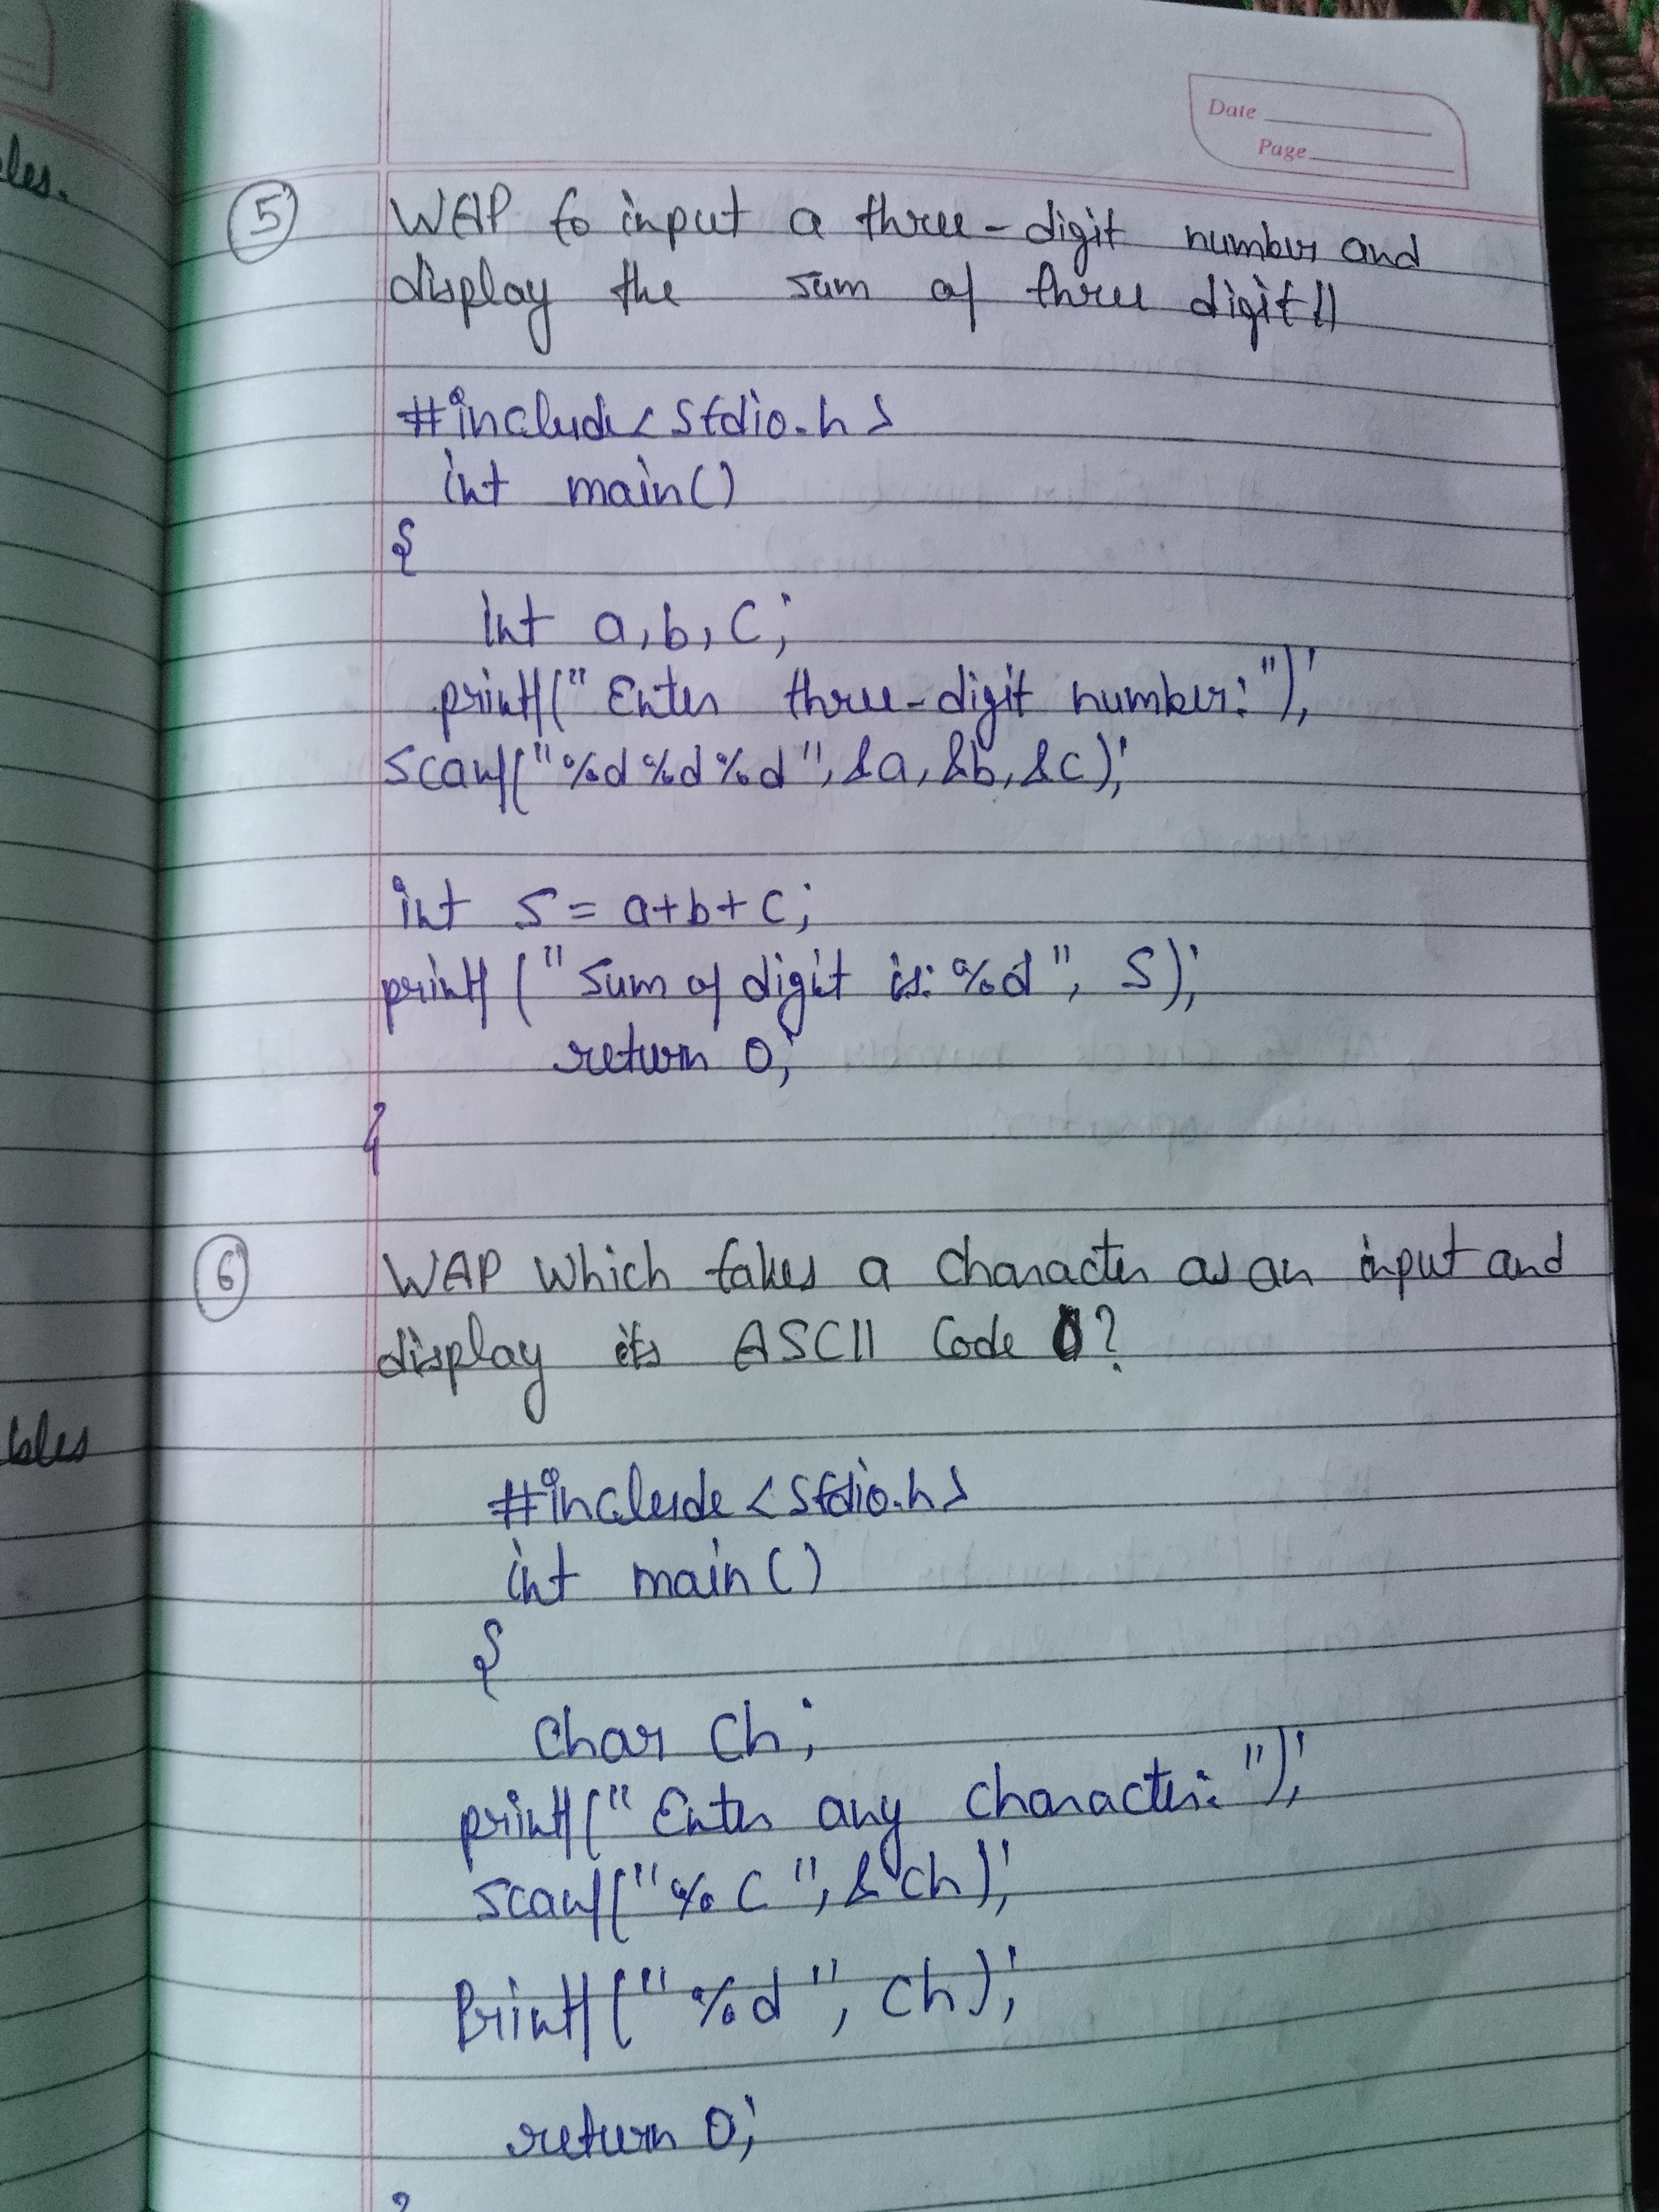 les.
Date
Page
5 WAP to input a three-digit number and
display the sum of three digit||
#include<stdio.h>
int main()
{
int a,b,c;
printf("Enter three-digit number:");
scanf("%d%d%d",&a,&b,&c);
int s=a+b+c;
printf("Sum of digit is:%d", s);
return 0;
}
6 WAP Which takes a character as an input and
display its ASCII Code ?
bles
#include<stdio.h>
int main()
{
char ch;
printf("Enter any character:");
scanf("%c",&ch);
Printf("%d", ch);
return 0;